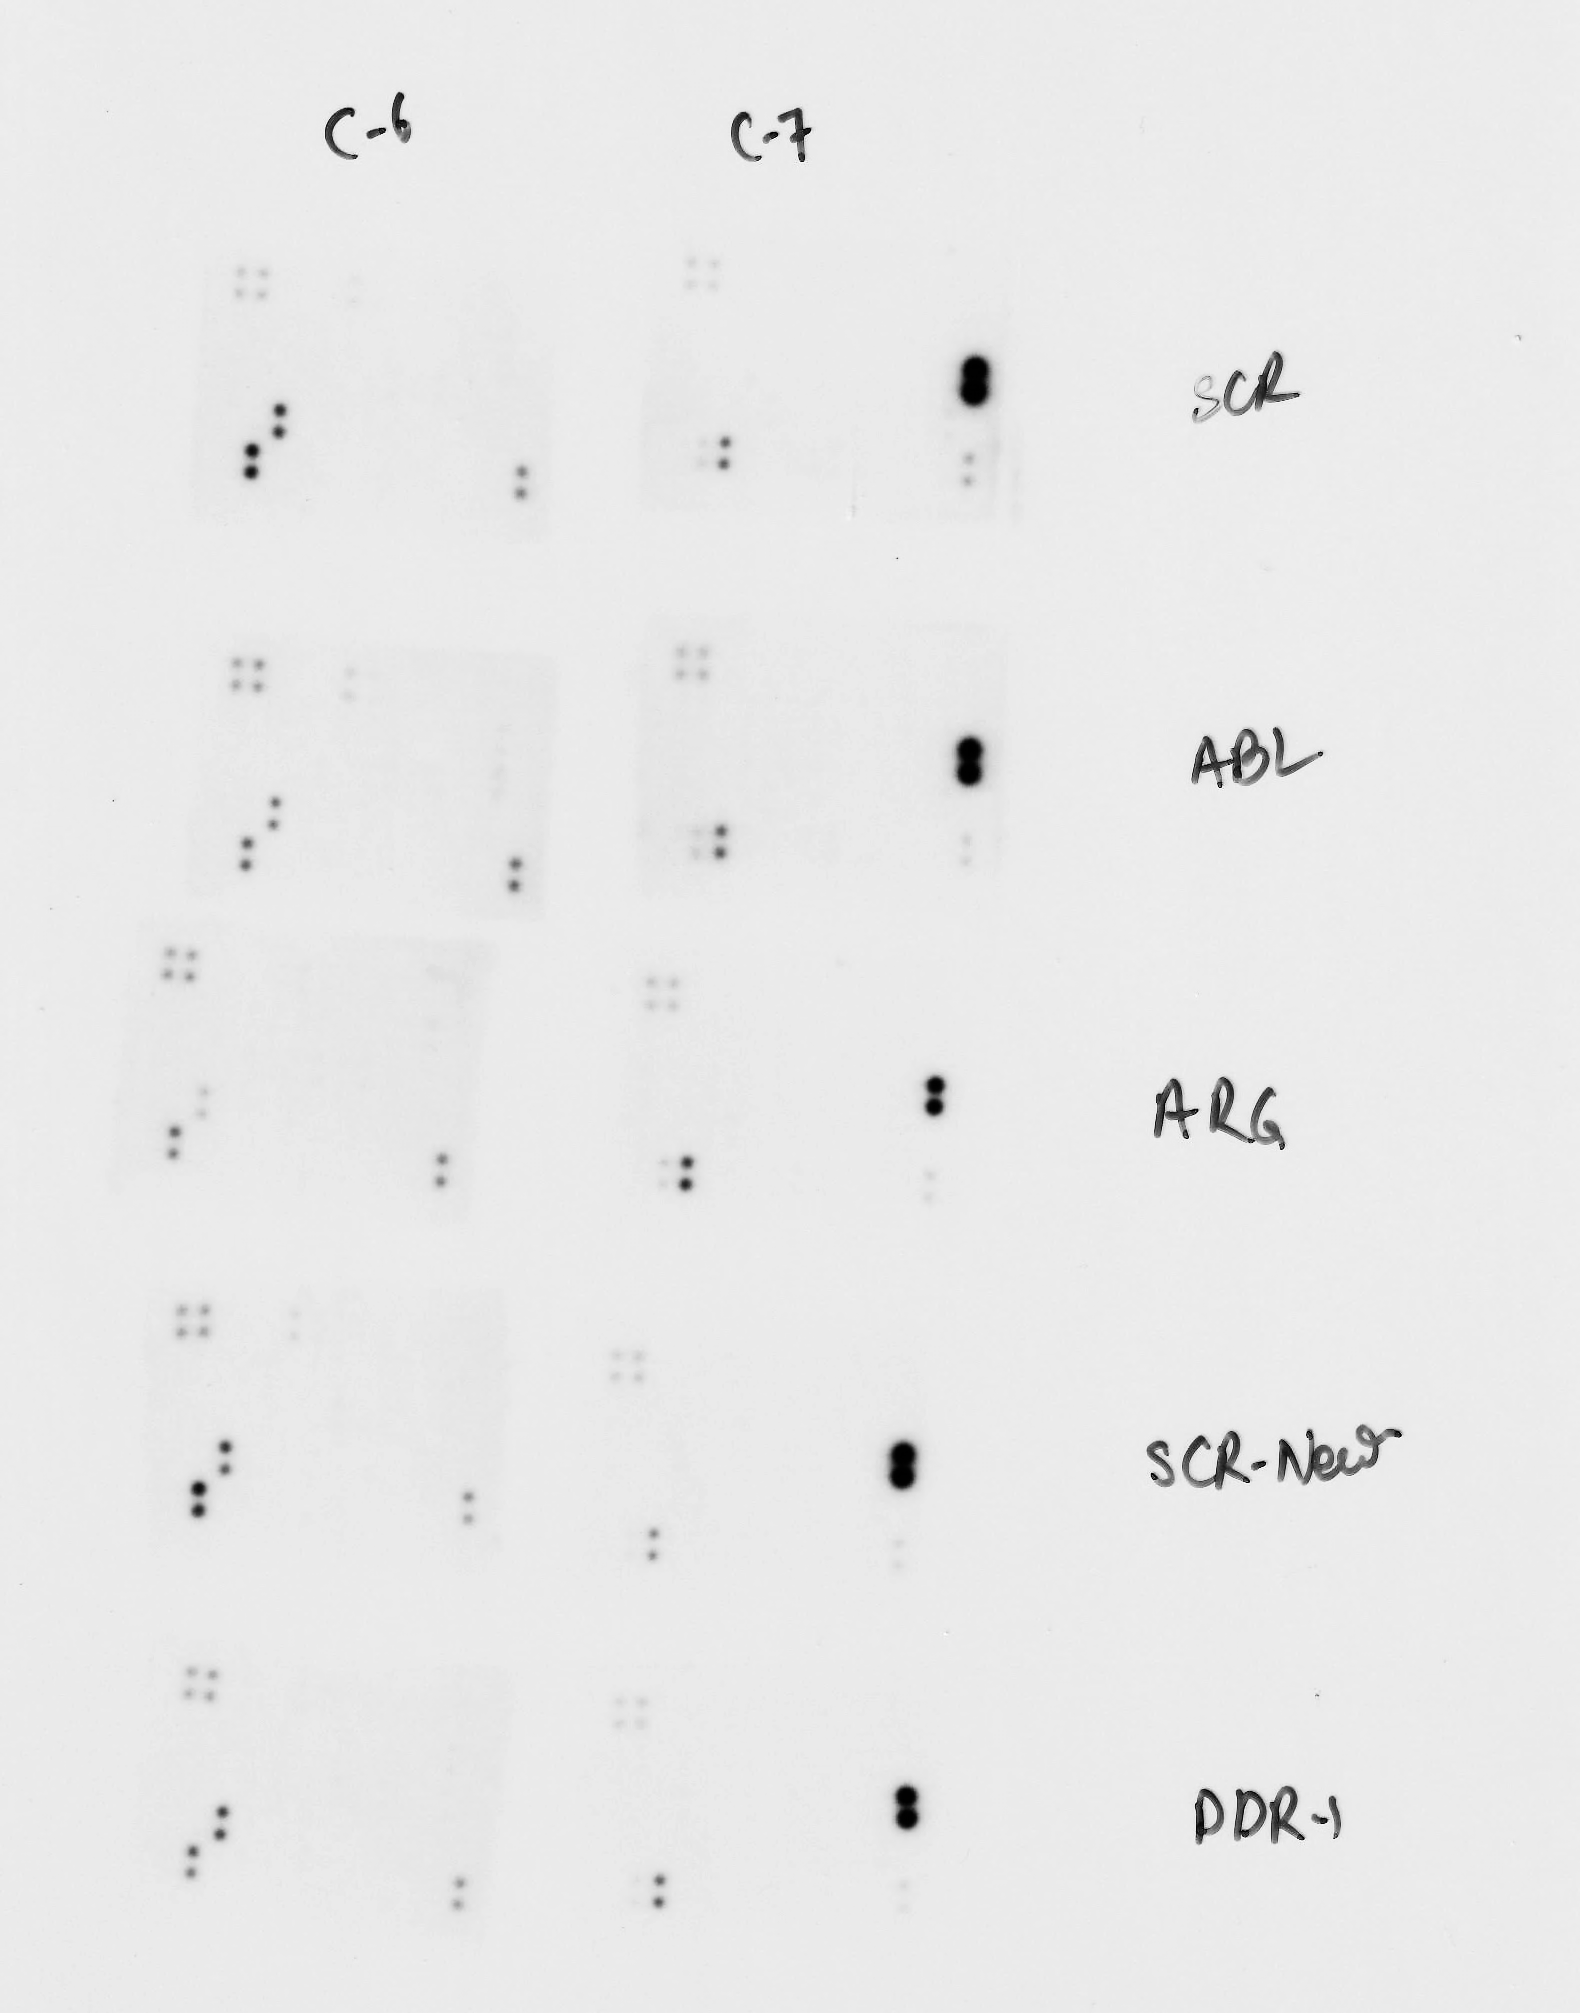 C-6 C-7
SCR
ABL
ARG
SCR-New
DDR-1